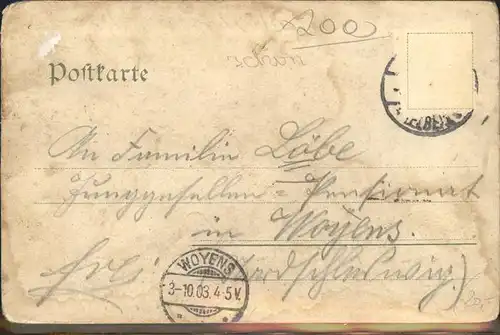 200
schön
Postkarte
An Familie Löbe
Junggesellen-Pensionat
in Woyens.
(Nordschleswig)
WOYENS
3-10.03.4-5V.
20,-